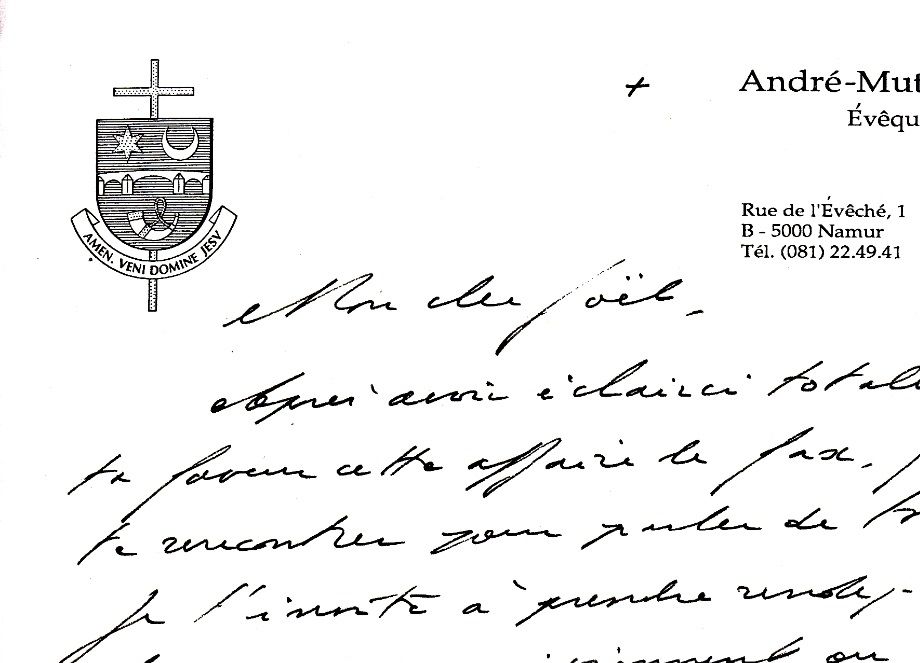 +
André-Mut
Évêqu
AMEN. VENI DOMINE JESV
Rue de l'Évêché, 1
B - 5000 Namur
Tél. (081) 22.49.41
Mon cher Joël,
Après avoir éclairci total
ta faveur cette affaire de fax,
te rencontrer pour parler de
Je t'invite à prendre rendez-
ou